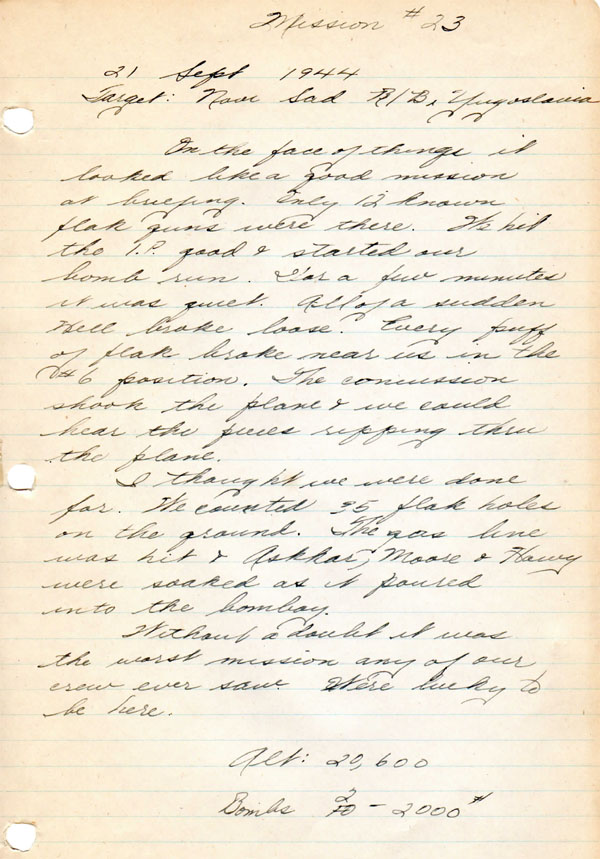 Mission #23
21 Sept 1944
Target: Novi Sad R/B, Yugoslavia
On the face of things it
looked like a good mission
at briefing. Only 12 known
flak guns were there. We hit
the I.P. good & started our
bomb run. For a few minutes
it was quiet. All of a sudden
Hell broke loose. Every puff
of flak broke near us in the
#6 position. The concussion
shook the plane & we could
hear the pieces ripping thru
the plane.
I thought we were done
for. We counted 35 flak holes
on the ground. The gas line
was hit & Askkar, Moore & Howy
were soaked as it poured
into the bombay.
Without a doubt it was
the worst mission any of our
crew ever saw. We're lucky to
be here.
Alt: 20,600
Bombs 2 - 2000#